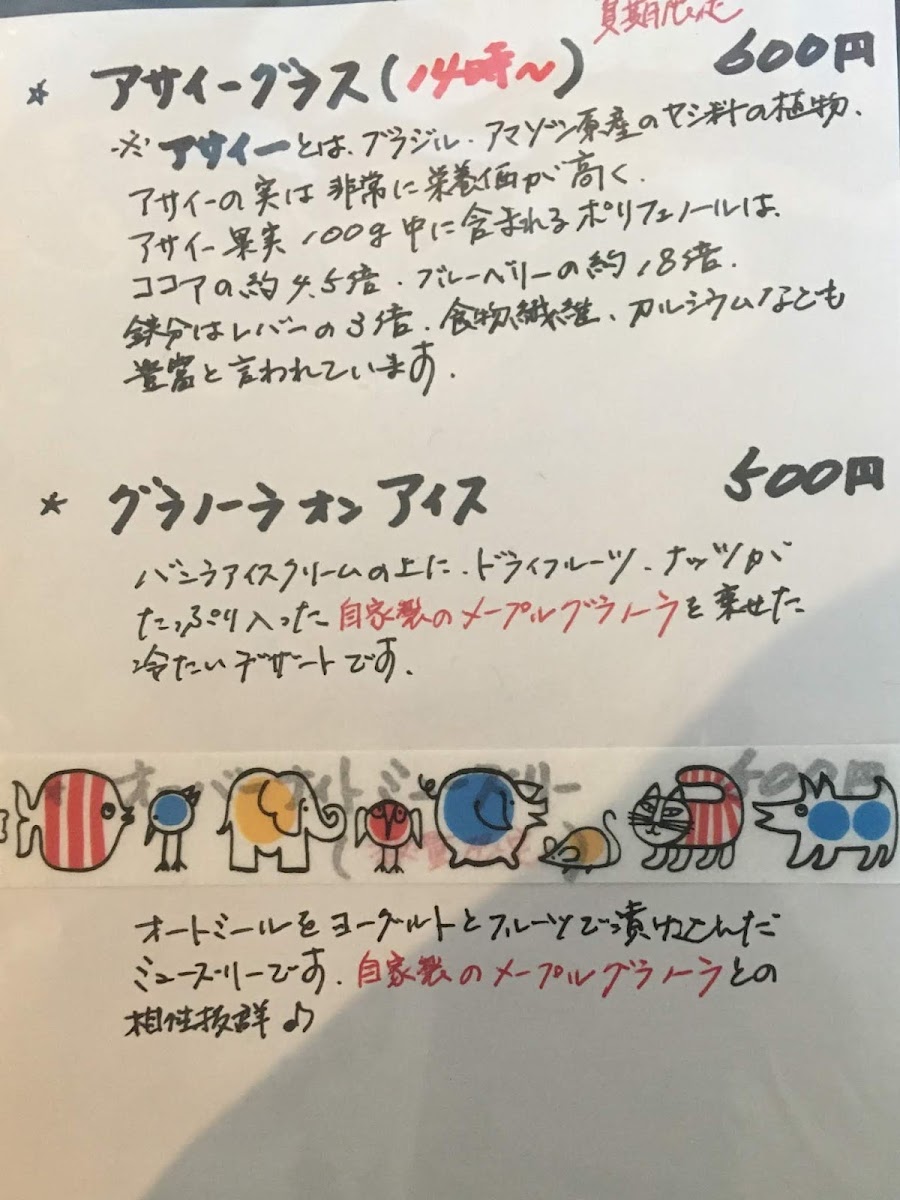 夏期限定
* アサイーグラス(14時〜) 600円
※アサイーとは、ブラジル・アマゾン原産のヤシ科の植物、
アサイーの実は非常に栄養価が高く、
アサイー果実100g中に含まれるポリフェノールは、
ココアの約4.5倍、ブルーベリーの約18倍、
鉄分はレバーの3倍、食物繊維、カルシウムなども
豊富と言われています。
* グラノーラオンアイス 500円
バニラアイスクリームの上に、ドライフルーツ、ナッツが
たっぷり入った自家製のメープルグラノーラを乗せた
冷たいデザートです。
オーバーナイトミューズリー 500円
オートミールをヨーグルトとフルーツで漬けこんだ
ミューズリーです。自家製のメープルグラノーラとの
相性抜群♪